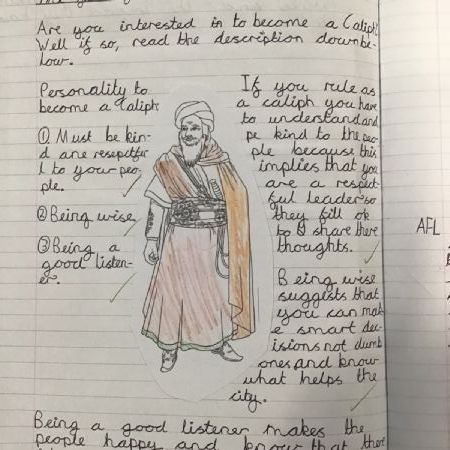 Are you interested in to become a Caliph?
Well if so, read the description down be-
low.
Personality to
become a Caliph
① Must be kin-
d and
l to your peo-
ple.
② Being wise
③ Being a
good listen-
er.
If you rule as
a caliph you have
to understand and
be kind to the peo-
ple because this
implies that you
are a respect-
ful leader so
they fill ok
to share there
thoughts.
Being wise
suggests that
you can mak-
e smart dec-
isions not dumb
ones and know
what helps the
city.
Being a good listener makes the
people happy and know that there
AFL